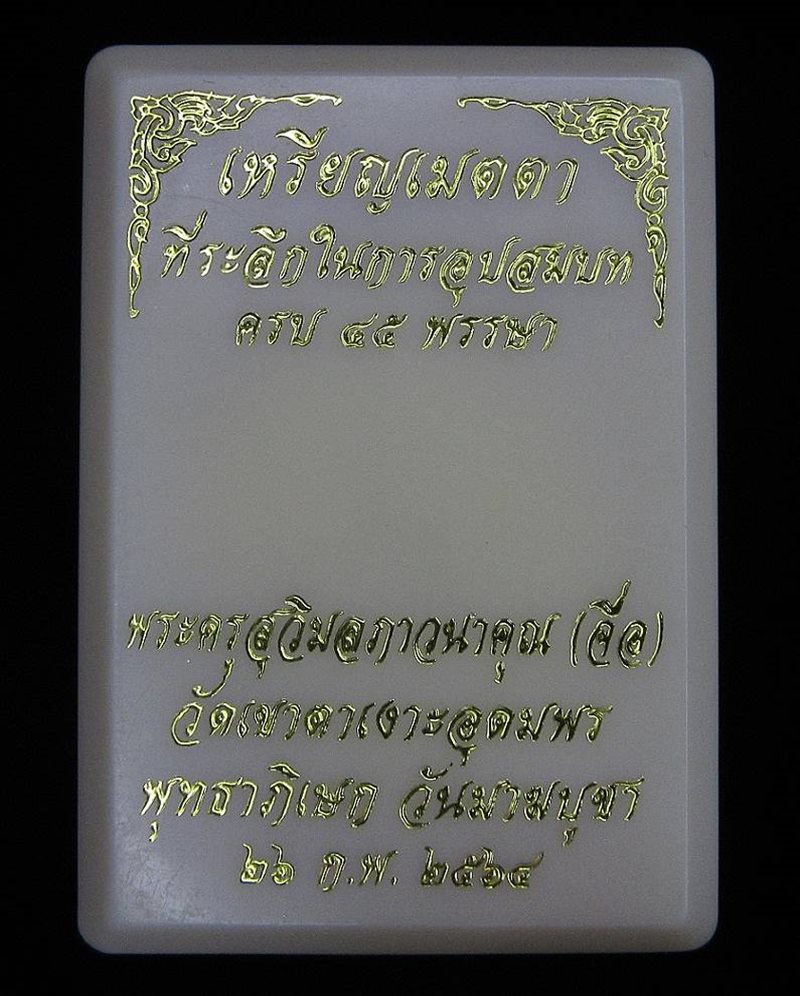 เหรียญเมตตา
ที่ระลึกในการอุปสมบท
ครบ ๔๕ พรรษา
พระครูสุวิมลภาวนาคุณ (จื่อ)
วัดเขาตาเงาะอุดมพร
พุทธาภิเษก วันมาฆบูชา
๒๖ ก.พ. ๒๕๖๔